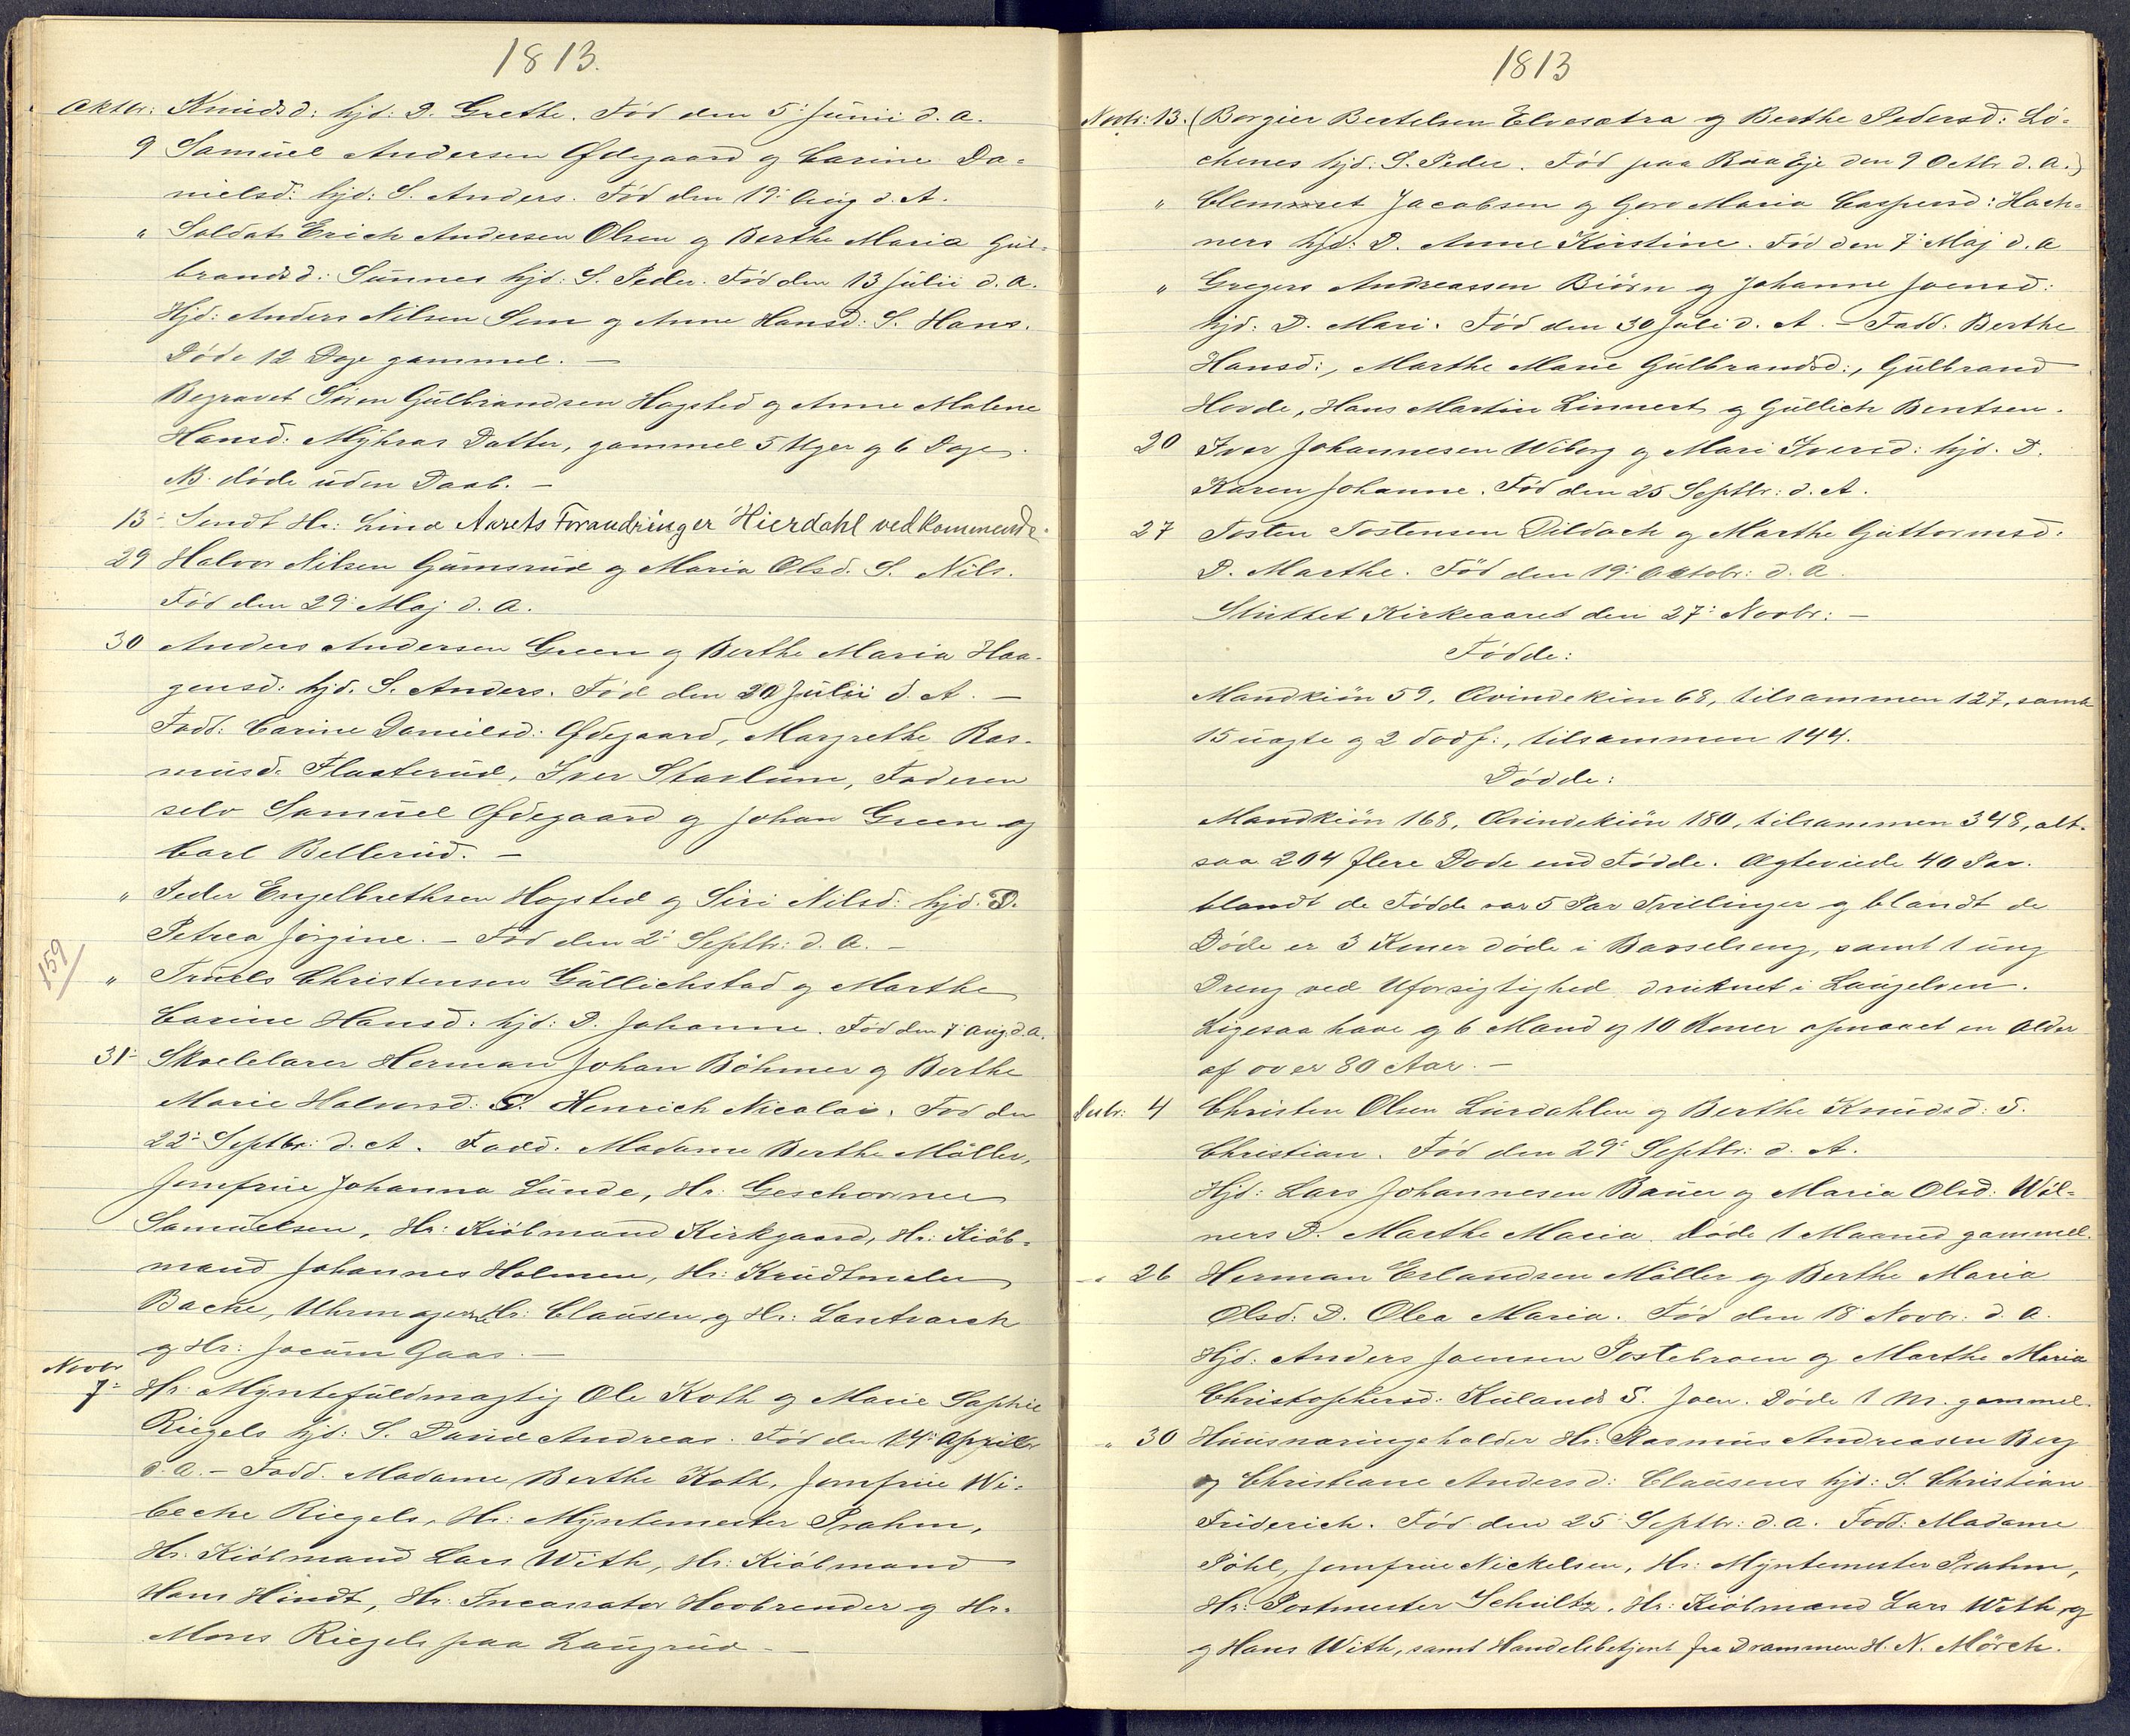 1813.
Oktbr: Knudsd: hjd: D. Grethe. Fód den 5: Junii d. A.
9 Samuel Andersen Ødegaard og Carine Da-
nielsd: hjd: S. Anders. Fód den 19: Aug d. A.
" Soldat Erich Andersen Olsen og Berthe Maria Gul-
brandsd: Sunnes hjd: S. Peder. Fód den 13 Julii d. A.
Hjd: Anders Nilsen Sem og Anne Hansd: S. Hans.
Dóde 12 Dage gammel. —
Begravet Sóren Gulbrandsen Hagsted og Anne Malene
Hansd: Myhras Datter, gammel 5 Uger og 6 Dage.
NB. dóde uden Daab. —
13: Sendt Hr: Lind Aarets Forandringer Hierdahl vedkommende.
29 Halvor Nilsen Gamsrud og Maria Olsd. S. Nils.
Fód den 29: Maj d. A.
30 Anders Andersen Green og Berthe Maria Haa-
gensd: hjd. S. Anders. Fód den 20 Julii d. A. —
Fadd: Carine Danielsd: Ødegaard, Margrethe Ras-
musd. Flaaterud, Iver Stavlum, Faderen
selv Samuel Ødegaard og Johan Green og
Carl Bellerud. —
" Peder Engelbrethsen Hogsted og Siri Nilsd: hjd. D.
Petrea Jórgine. — Fód den 2: Septbr: d. A. —
159
" Truels Christensen Gullichstad og Marthe
Carine Hansd: hjd: D. Johanne. Fód den 7: Aug. d. A.
31: Skolelærer Herman Johan Böhmer og Berthe
Marie Halvorsd: S. Henrich Nicolai. Fód den
22: Septbr: d. A. Fadd. Madame Berthe Möller,
Jomfrue Johanna Lunde, Hr: Geschworner
Samuelsen, Hr: Kióbmand Kirkgaard, Hr: Kiób-
mand Johannes Holmen, Hr: Krudtmaler
Bache, Uhrmager Hr: Clausen og Hr: Lantvarck
og Hr: Jocum Gaas. —
Novbr
7: Hr: Myntefuldmægtig Ole Koth og Marie Saphie
Riegels hjd: S. Daniel Andreas. Fód den 14: Aprill
d. A. — Fadd. Madame Berthe Koth, Jomfrue Wi-
beche Riegels, Hr: Myntemester Prahm,
Hr. Kióbmand Lars With, Hr: Kióbmand
Hans Hindt, Hr. Incassator Hovbrender og Hr.
Mons Riegels paa Laugrud —
1813
Novbr: 13. (Borgier Bertelsen Elvesætra og Berthe Pedersd: Ló-
chenes hjd: S. Peder. Fód paa Raa Eje den 9 Octbr d. A.)
" Clemmet Jacobsen og Goro Maria Caspersd: Hach-
ners hjd: D. Anne Kirstine. Fód den 7: Maj d. A
" Gregers Andreassen Biórn og Johanne Joensd:
hjd: D. Mari. Fód den 30 Juli d. A. — Fadd. Berthe
Hansd:, Marthe Marie Gulbrandsd:, Gulbrand
Hovde, Hans Martin Linnert og Gullich Bentsen.
20 Iver Johannesen Wiborg og Mari Iversd: hjd. D.
Karen Johanne. Fód den 25 Septbr: d. A.
27 Tosten Tostensen Dildach og Marthe Guttormsd:
D. Marthe. Fód den 19: Oktobr: d. A.
Sluttet Kirkeaaret den 27: Novbr: —
Fódde:
Mandkión 59, Qvindekión 68, tilsammen 127, samt
15 uægte og 2 dódf:, tilsammen 144.
Dódde:
Mandkión 168, Qvindekión 180, tilsammen 348, alt-
saa 204 flere Dode end Fódde. Ægteviede 40 Par.
blandt de Fódde var 5 Par Tvillinger og blandt de
Dóde er 3 Koner dóde i Barselseng, samt 1 ung
Dreng ved Uforsigtighed druknet i Laugelven.
Ligesaa have og 6 Mand og 10 Koner opnaaet en Alder
af over 80 Aar. —
Decbr: 4 Christen Olsen Lurdahlen og Berthe Knudsd: S.
Christian. Fód den 29: Septbr: d. A.
Hjd: Lars Johannesen Bauer og Maria Olsd: Wól-
ners D. Marthe Maria. Dóde 1 Maaned gammel.
— " 26 Herman Erlandsen Möller og Berthe Maria
Olsd: D. Olea Maria. Fód den 18: Novbr: d. A.
Hjd: Anders Joensen Postebroen og Marthe Maria
Christophersd: Rulands S. Joen. Dóde 1 M. gammel.
— " 30 Huusnæringsholder Hr: Rasmus Andreasen Berg
og Christiane Andersd: Clausens hjd: S. Christian
Friderich. Fód den 25 Septbr: d. A. Fadd: Madame
Póhl, Jomfrue Nickelsen, Hr: Myntemester Prahm,
Hr. Postmester Schultz, Hr: Kióbmand Lars With og
og Hans With, samt Handelsbetjent fra Drammen H. N. Mörch.